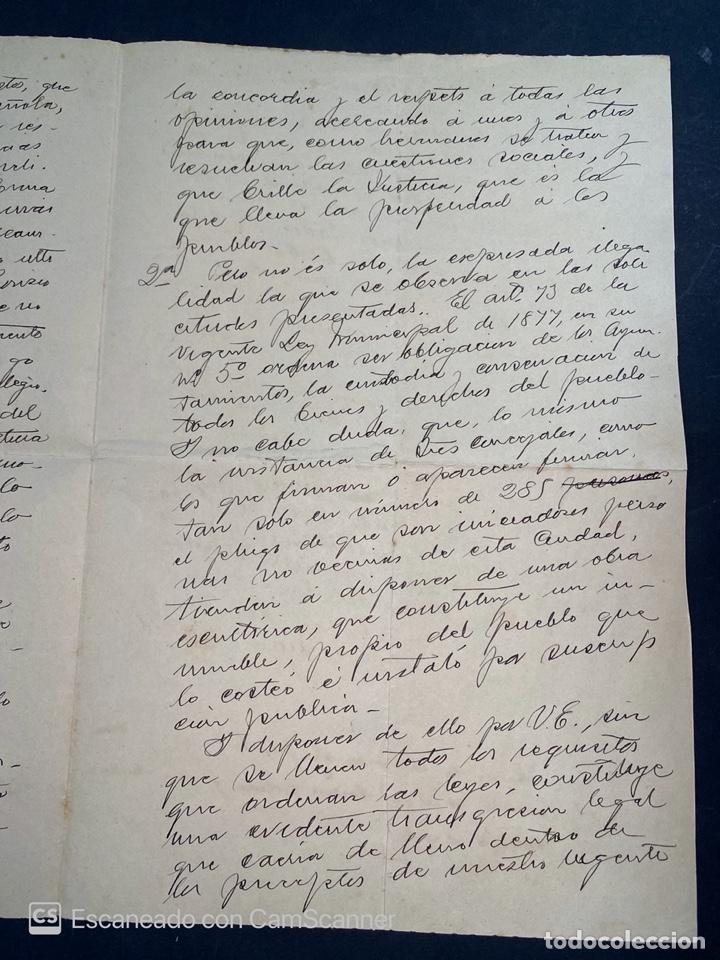 to, que
ñola,
res-
das
la concordia y el respeto á todas las
opiniones, acercando á unos y á otros
para que, como hermanos se traten y
resuelvan las cuestiones sociales, y
que brille la Justicia, que és la
que lleva la prosperidad á los
pueblos.-
2ª Pero no és solo, la expresada ilega
lidad la que se observa en las soli
citudes presentadas.. El artº 73 de la
vigente Ley Municipal de 1877, en su
nº 5º ordena ser obligacion de los Ayun
tamientos, la custodia y conservacion de
todos los bienes y derechos del pueblo-
Y no cabe duda, que, lo mismo
la instancia de tres concejales, como
los que firman ó aparecen firmar,
tan solo en número de 285 personas,
el pliego de que son iniciadores perso
nas no vecinas de esta Ciudad,
tienden á disponer de una obra
escultórica, que constituye un in-
mueble, propio del pueblo que
lo costeó é instaló por suscrip
ción publica-
Y disponer de ello por V.E., sin
que se llenen todos los requisitos
que ordenan las leyes, constituye
una evidente transgresion legal
que caeria de lleno dentro de
los preceptos de nuestro vigente
CS Escaneado con CamScanner
todocoleccion